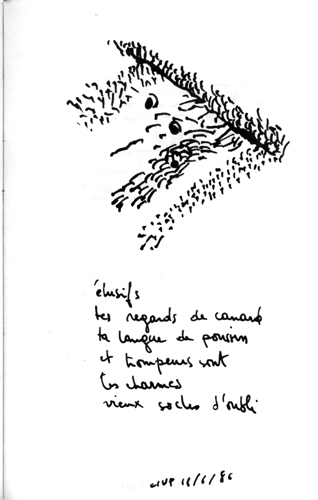 élusifs
tes regards de canard
ta langue de poussin
et trompeurs sont
tes charmes
vieux socles d'oubli